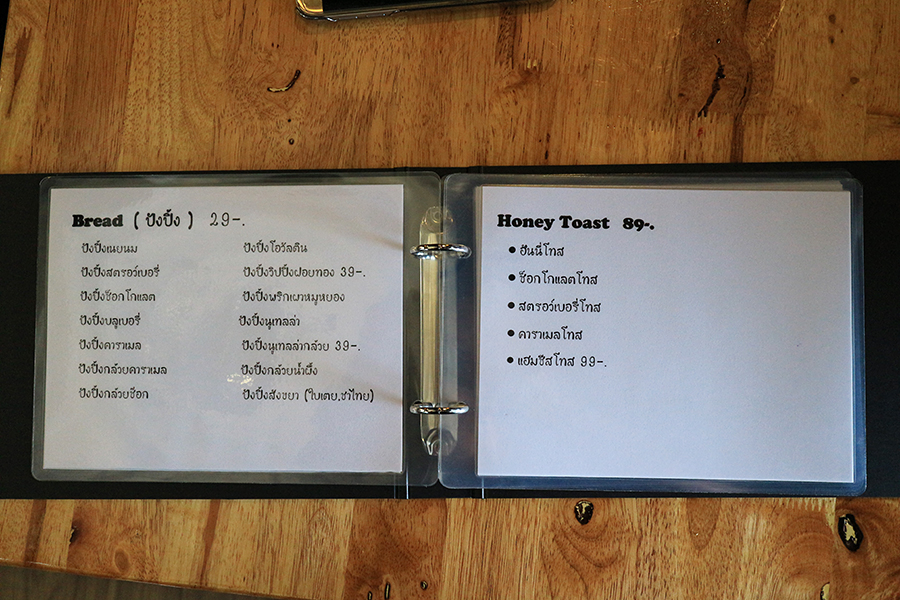 Bread ( ปังปิ้ง ) 29-.
ปังปิ้งเนยนม
ปังปิ้งสตรอว์เบอรี่
ปังปิ้งช็อกโกแลต
ปังปิ้งบลูเบอรี่
ปังปิ้งคาราเมล
ปังปิ้งกล้วยคาราเมล
ปังปิ้งกล้วยช็อก
ปังปิ้งโอวัลติน
ปังปิ้งวิปปิ้งฝอยทอง 39-.
ปังปิ้งพริกเผาหมูหยอง
ปังปิ้งนูเทลล่า
ปังปิ้งนูเทลล่ากล้วย 39-.
ปังปิ้งกล้วยน้ำผึ้ง
ปังปิ้งสังขยา (ใบเตย,ชาไทย)
Honey Toast 89-.
• ฮันนี่โทส
• ช็อกโกแลตโทส
• สตรอว์เบอรี่โทส
• คาราเมลโทส
• แฮมชีสโทส 99-.